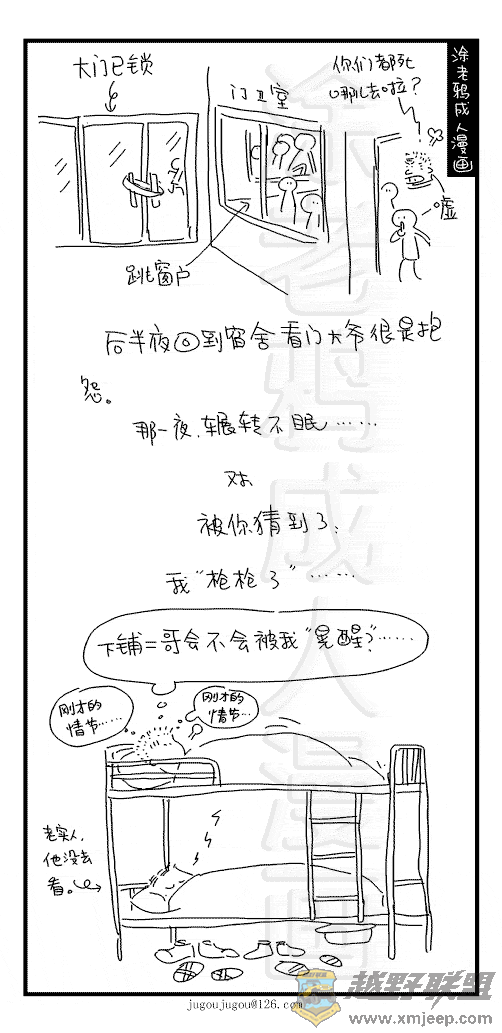 涂老鸦成人漫画
大门已锁
门卫室
你们都死
哪儿去啦？
嘘
跳窗户
后半夜回到宿舍看门大爷很是抱
怨。
那一夜，辗转不眠……
对
被你猜到了，
我“枪枪了”……
下铺二哥会不会被我“晃醒？”……
刚才的
情节……
刚才的
情节……
老实人，
他没去
看。
涂老鸦成人漫画
jugoujugou@126.com
越野联盟
www.xmjeep.com